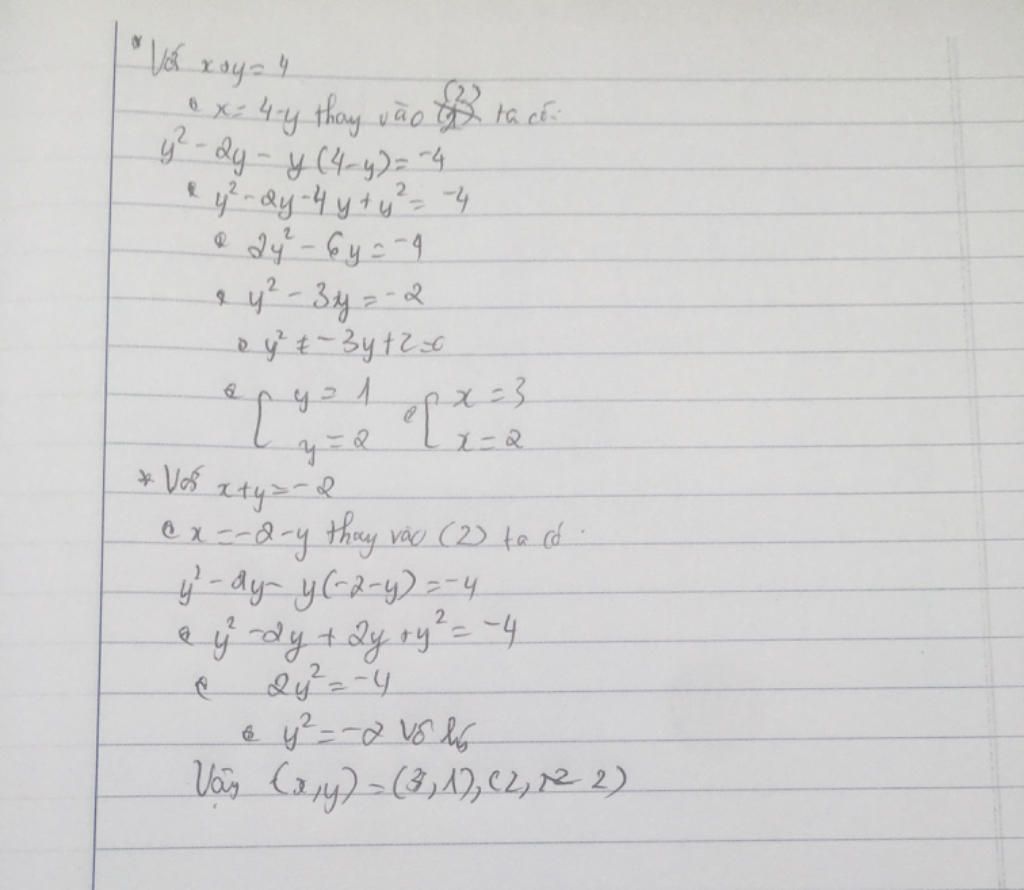 * Với x+y=4
⇔ x=4-y thay vào (2) ta có:
y²-2y-y(4-y)=-4
⇔ y²-2y-4y+y²=-4
⇔ 2y²-6y=-4
⇔ y²-3y=-2
⇔ y²-3y+2=0
⇔ [ y=1 ⇔ [ x=3
y=2 x=2
* Với x+y=-2
⇔ x=-2-y thay vào (2) ta có.
y²-2y-y(-2-y)=-4
⇔ y²-2y+2y+y²=-4
⇔ 2y²=-4
⇔ y²=-2 Vô lý
Vậy (x,y)=(3,1),(2,2)